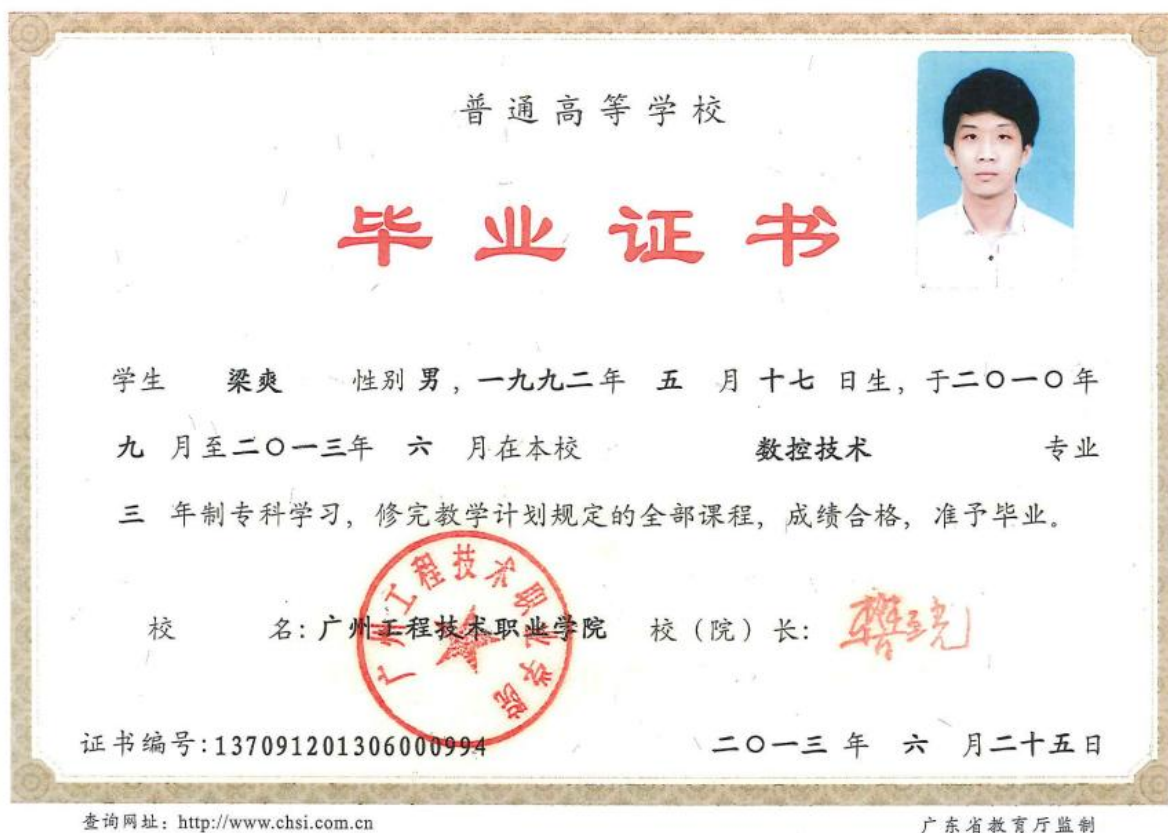 普通高等学校
毕业证书
学生 梁爽 性别 男，一九九二年 五 月 十七 日生，于二〇一〇年
九 月至二〇一三年 六 月在本校 数控技术 专业
三 年制专科学习，修完教学计划规定的全部课程，成绩合格，准予毕业。
广州工程技术职业学院
校 名：广州工程技术职业学院 校（院）长：
证书编号：137091201306000994 二〇一三 年 六 月二十五日
查询网址：http://www.chsi.com.cn 广东省教育厅监制